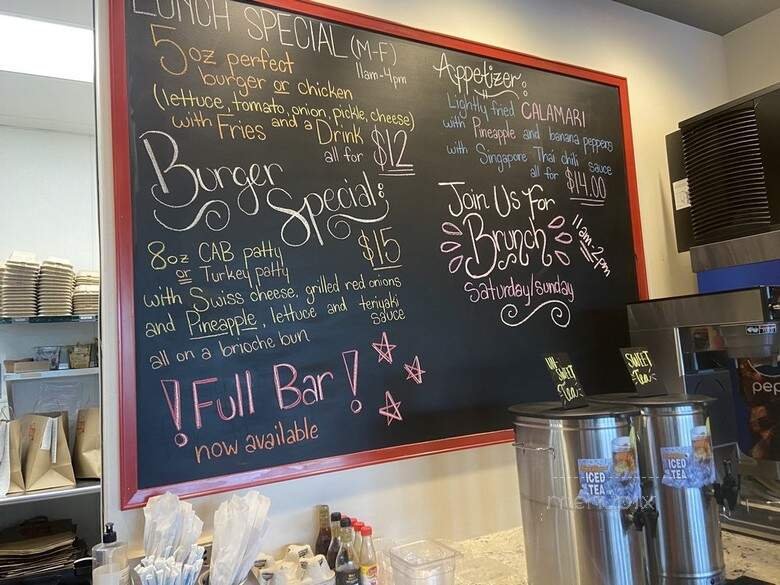 LUNCH SPECIAL (M-F)
11am-4pm
5oz perfect
burger or chicken
(lettuce, tomato, onion, pickle, cheese)
with Fries and a Drink
all for $12
Burger
Special:
8oz CAB patty $15
or Turkey patty
with Swiss cheese, grilled red onions
and Pineapple, lettuce and teriyaki
sauce
all on a brioche bun
! Full Bar !
now available
Appetizer:
Lightly fried CALAMARI
with Pineapple and banana peppers
with Singapore Thai chili sauce
all for $14.00
Join Us For
Brunch
11am-2pm
Saturday/Sunday
SWEET
Tea
SWEET
Tea
ICED
TEA
ICED
TEA
pep
menupix